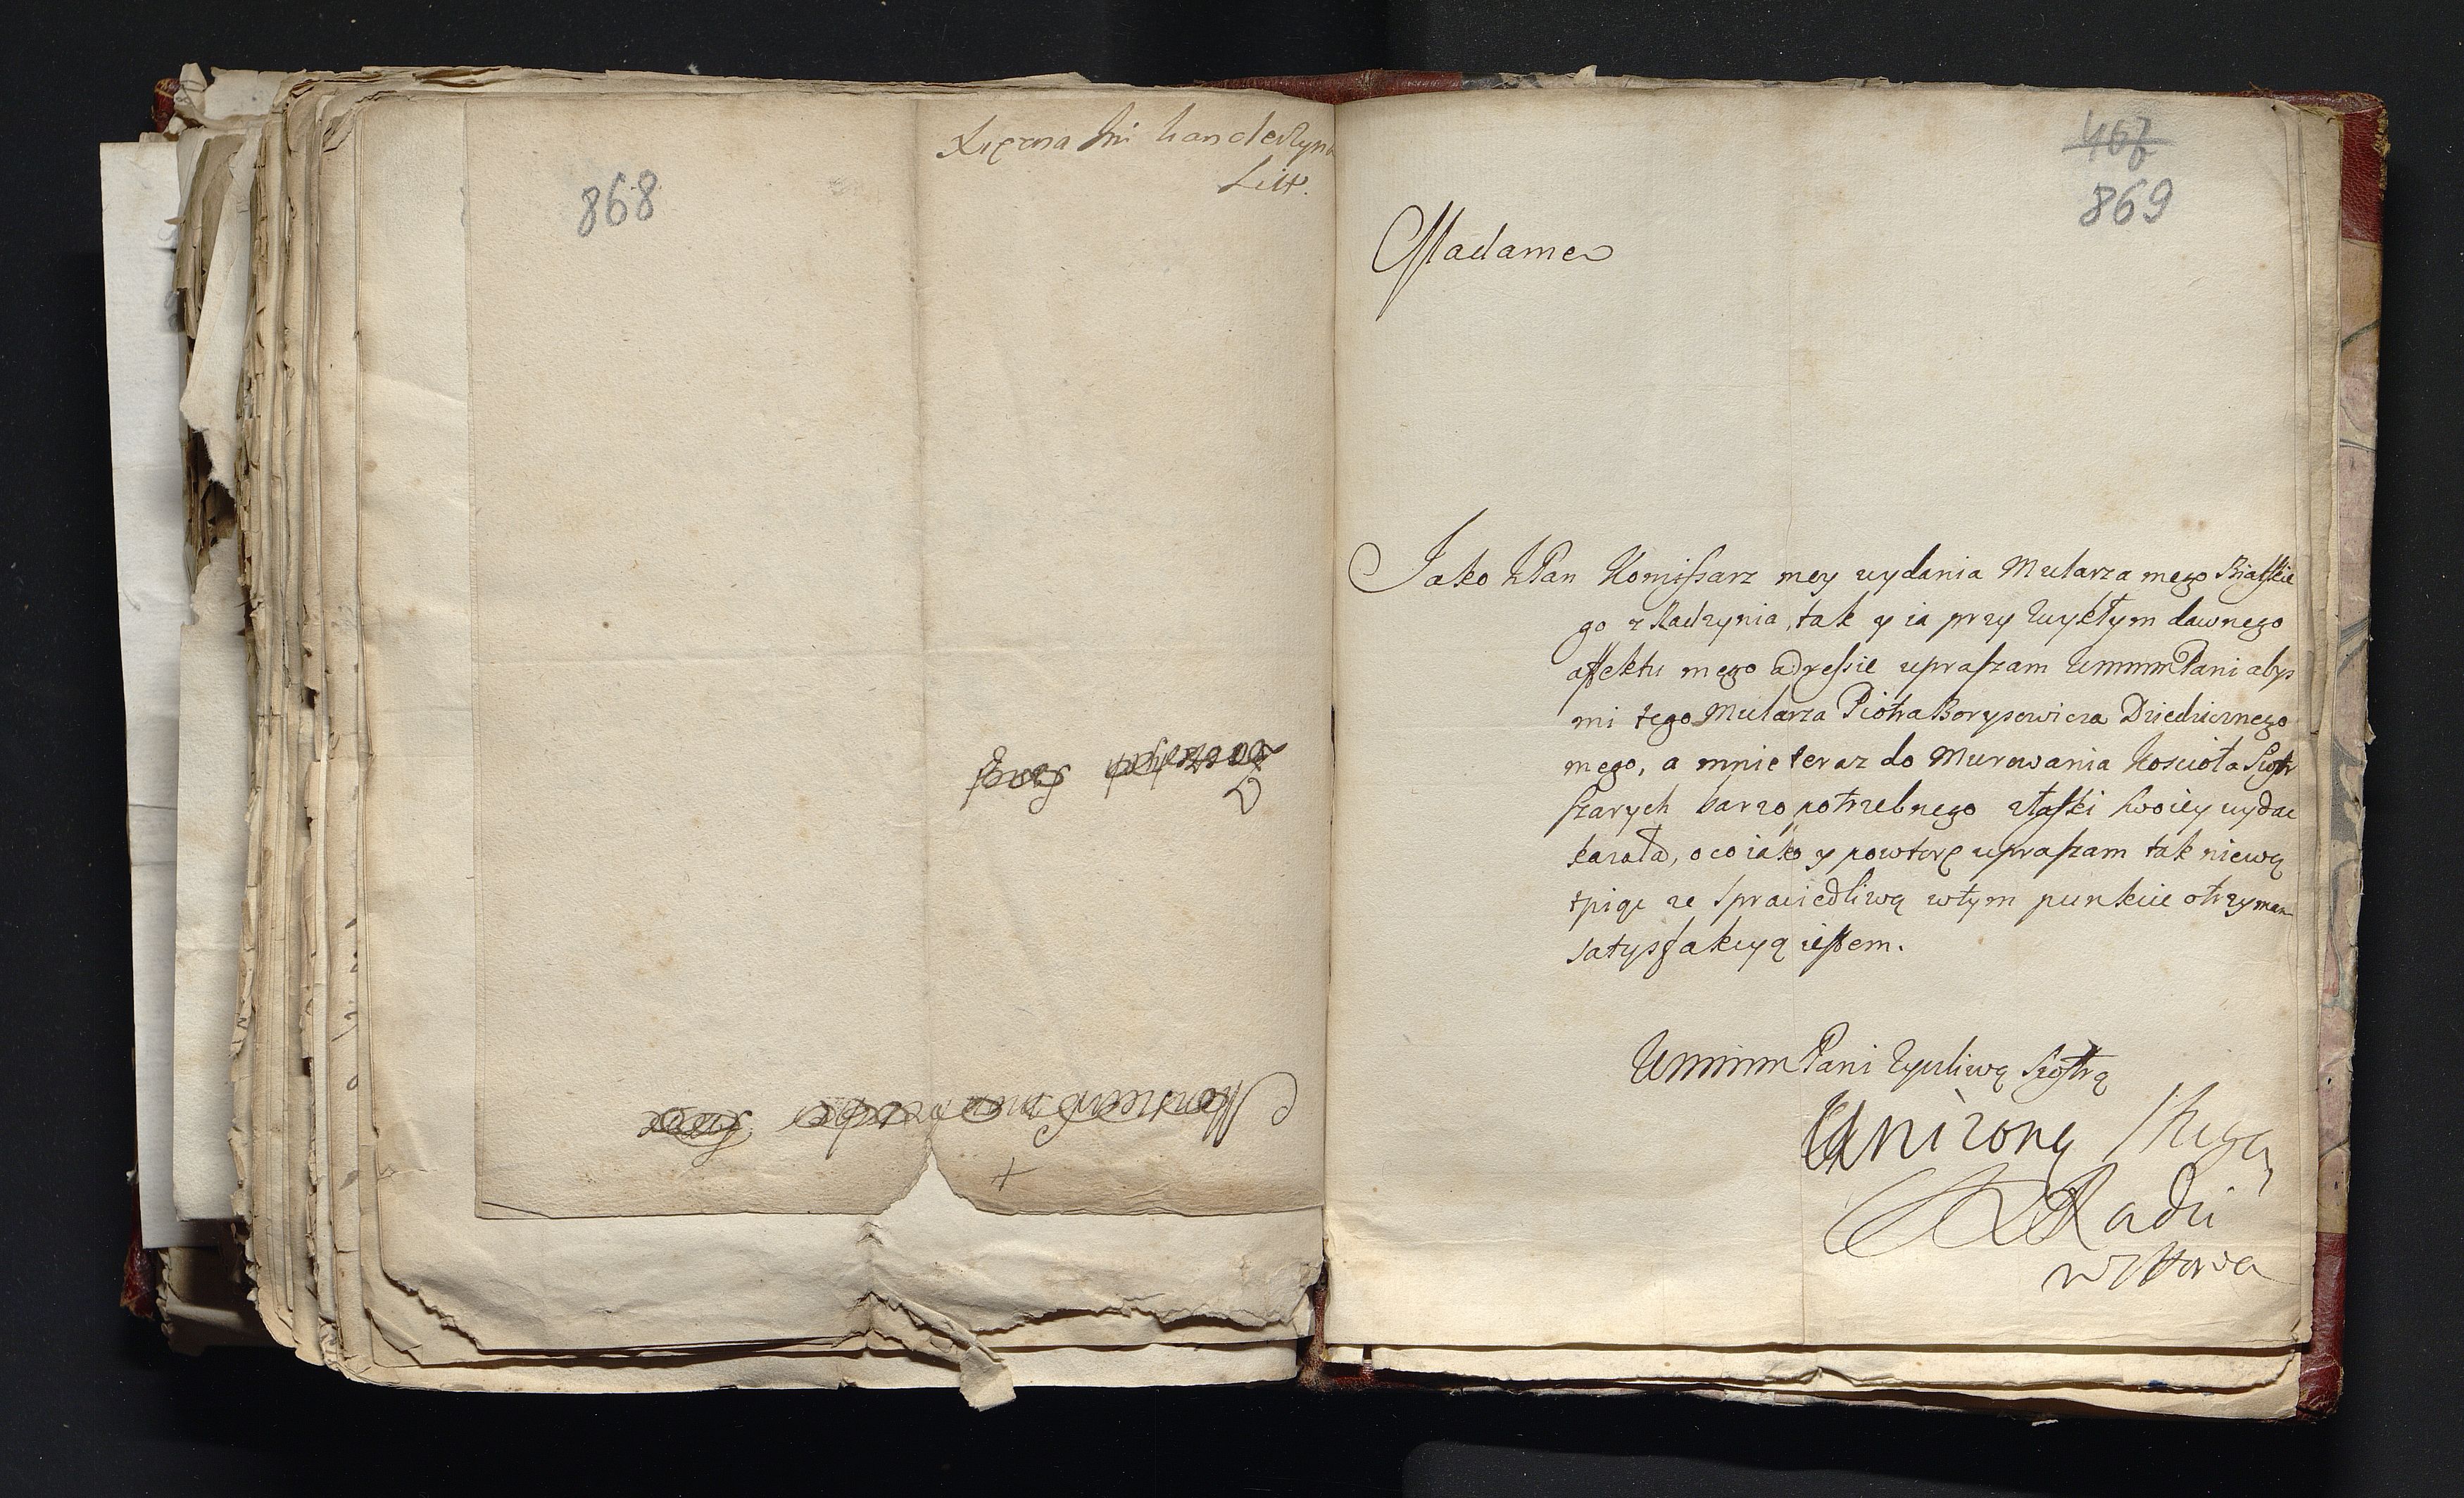 Xięzna Jmi kanclerzyna
Litt.
868
467
869
Madame
Jako JPan Komissarz mey wydania Mularza mego Bialskie
go z Radzynia, tak y ia przy zwykłym dawnego
affektu mego adressie upraszam WMMMPani abys
mi tego Mularza Piotra Borysowicza Dziedzicznego
mego, a mnie teraz do Murowania Kosciola Siostr
szarych barzo potrzebnego z łaski swoiey wydac
kazała, o co iako y powtorę upraszam tak niewą
tpiąc ze sprawiedliwą w tym punkcie otrzymam
satysfakcyą iestem.
WMMMPani życzliwą siostrą
Uniżoną sługą
Radzi
wiłłowa